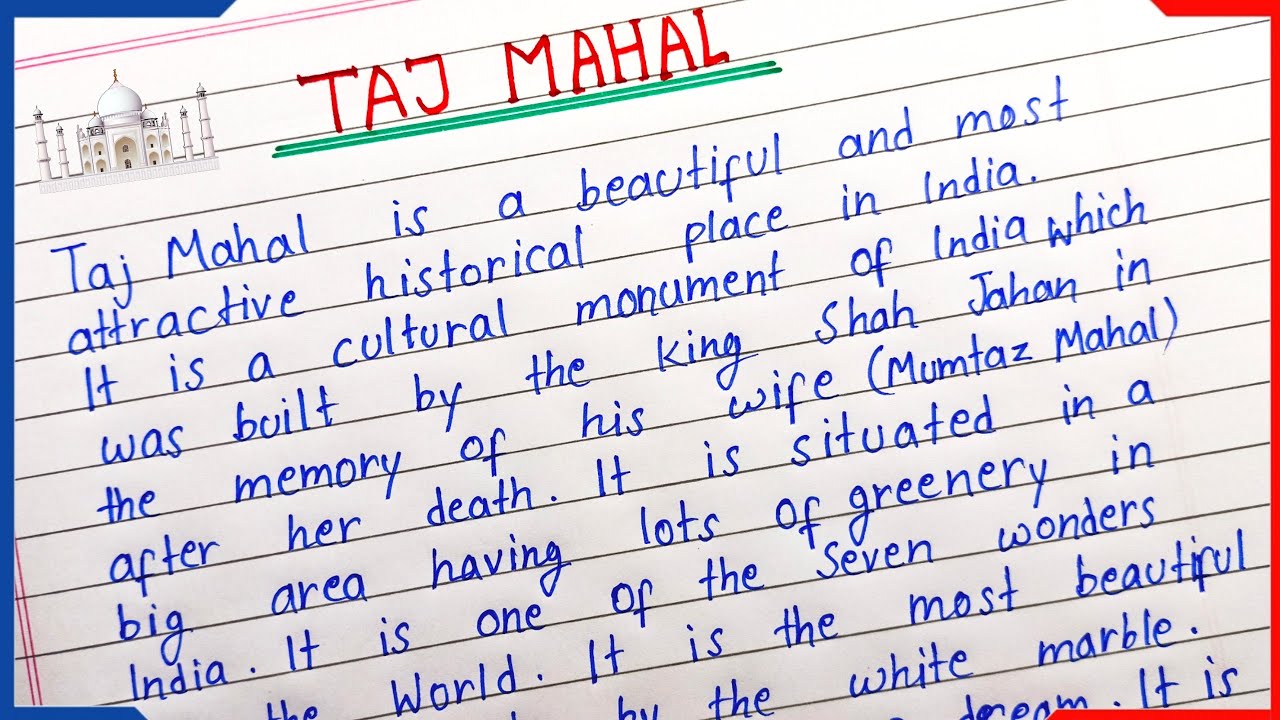 TAJ MAHAL
Taj Mahal is a beautiful and most
attractive historical place in India.
It is a cultural monument of India which
was built by the king Shah Jahan in
the memory of his wife (Mumtaz Mahal)
after her death. It is situated in a
big area having lots of greenery in
India. It is one of the seven wonders
the World. It is the most beautiful
by the white marble.
dream. It is